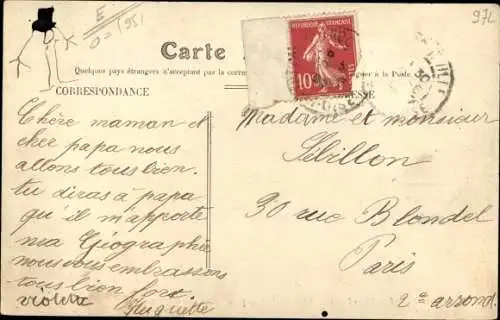 E
0=1951
974
Carte
Quelques pays étrangers n'acceptent pas la corres
à la Poste
CORRESPONDANCE
RÉPUBLIQUE FRANÇAISE
10
POSTES
Chère maman et
cher papa nous
allons tous bien.
tu diras à papa
qu'il m'apporte
ma Géographie
nous vous embrassons
tous bien fort
violette
Huguette
Madame et monsieur
Sébillon
30 rue Blondel
Paris
2e arrond.